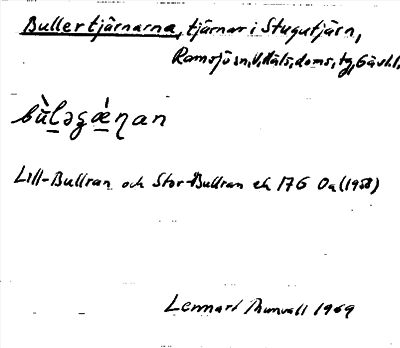 Bullertjärnarna, tjärnar i Stugutjärn,
Ramsjö sn, V. Häls. doms. tg, Gävl. l.
bùləgǽŋan
Lill-Bullran och Stor-Bullran ek 17G 0a (1958)
Lennart Thunvall 1969